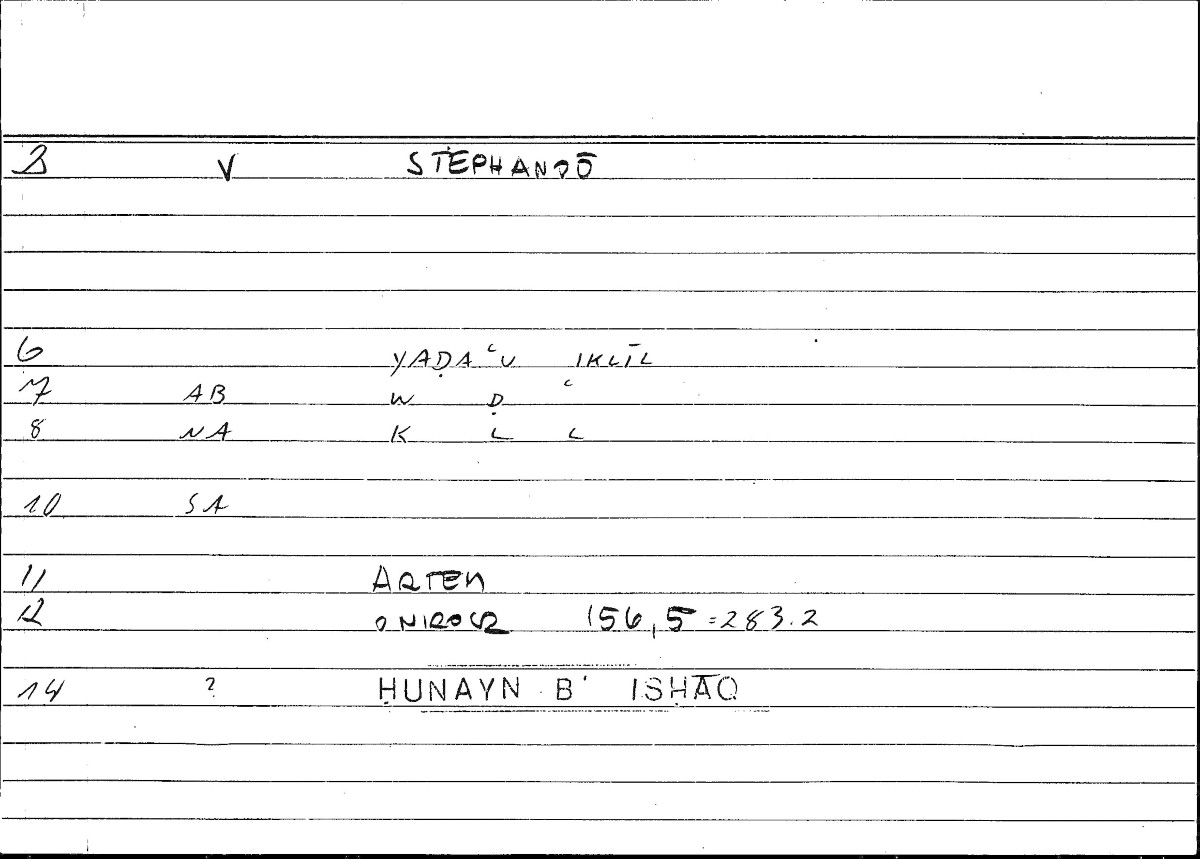 2 V STEPHANOŌ
6 YAḌAʿU IKLĪL
7 AB W Ḍ ʿ
8 NA K L L
10 SA
11 ARTEM
12 ONIROCR 156,5 = 283.2
14 ? ḤUNAYN B' ISḤĀQ